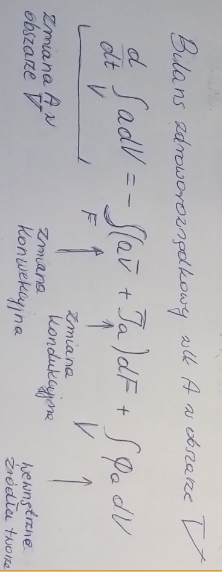 Bilans zdroworozsądkowy wlk A w obszarze V
d/dt ∫_V a dV = - ∫_F (a v̄ + J̄a) dF + ∫_V φa dV
zmiana A w
obszarze V
zmiana
konwekcyjna
zmiana
kondukcyjna
wewnętrzne
źródła